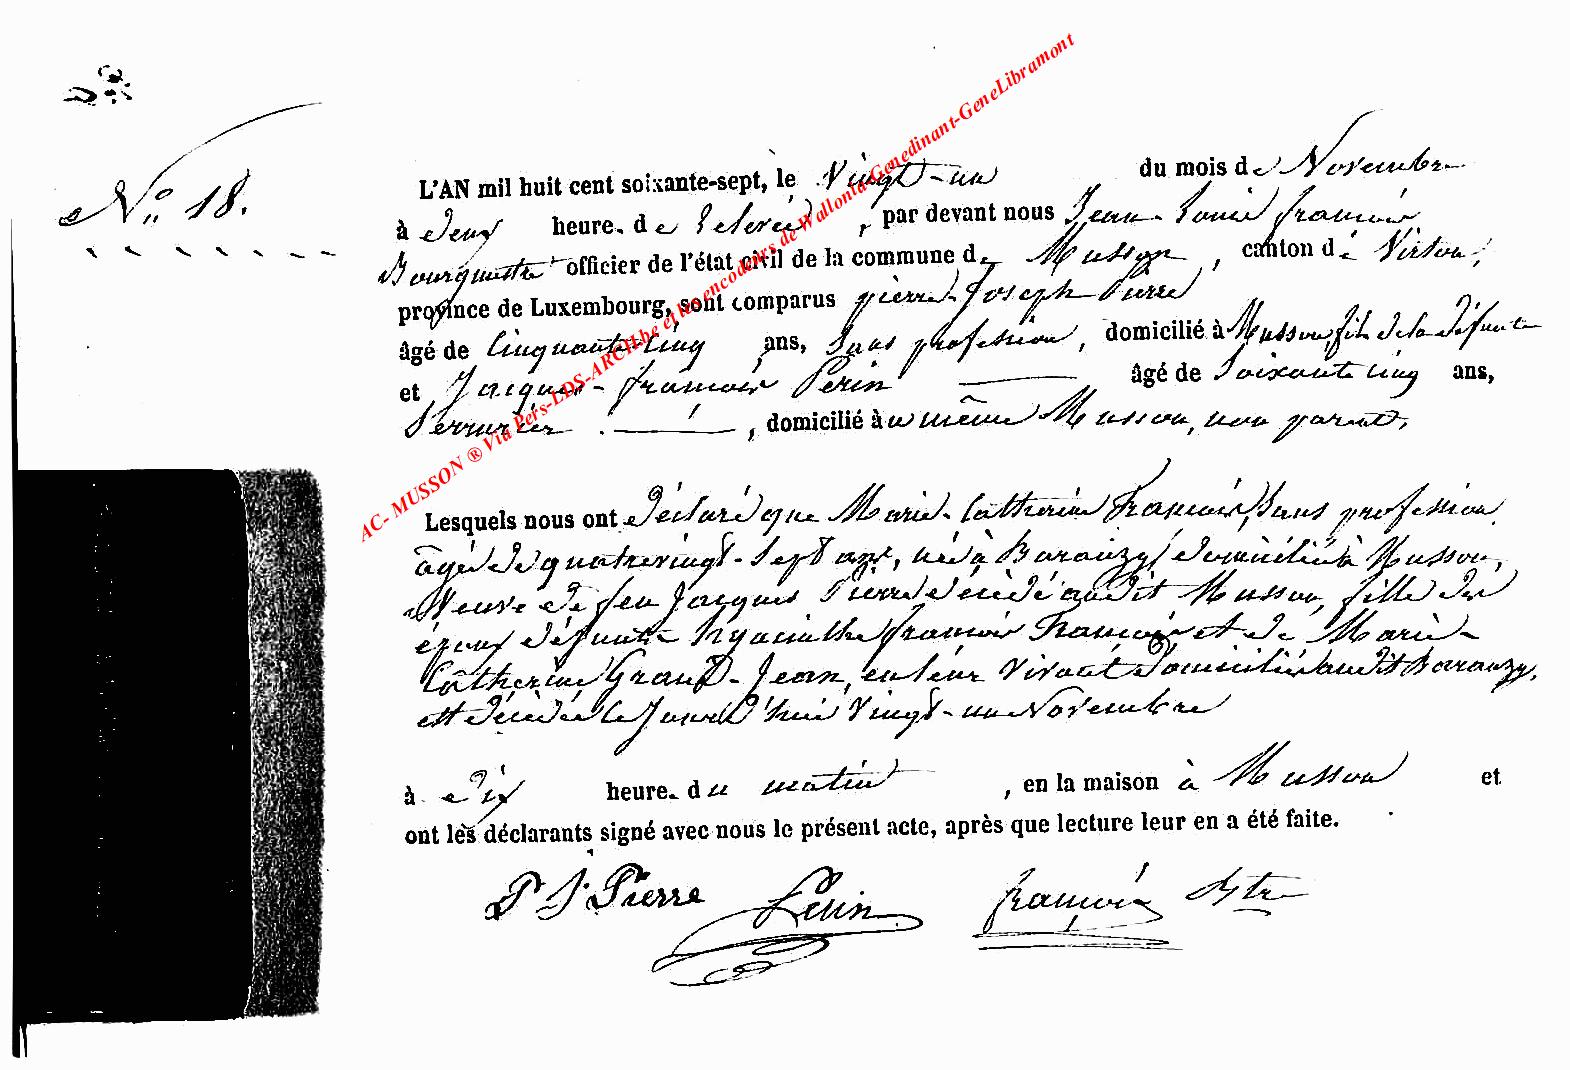 N° 18.
L'AN mil huit cent soixante-sept, le Vingt-un du mois de Novembre
à deux heure. de relevée, par devant nous Jean-Louis françois
Bourgmestre officier de l'état civil de la commune de Musson, canton de Virton,
province de Luxembourg, sont comparus pierre-Joseph Pierre
âgé de Cinquante-cinq ans, Sans profession, domicilié à Musson, fils de la défunte
et Jacques-françois Perin âgé de Soixante cinq ans,
Serrurier, domicilié au même Musson, non parent,
Lesquels nous ont déclaré que Marie-Catherine François, Sans profession
âgée de quatrevingt-Sept ans, née à Baranzy, domiciliée à Musson,
Veuve de feu Jacques Pierre décédé audit Musson, fille des
époux défunts hyacinthe françois François et de Marie-
Catherine Grand-Jean, en leur vivant domiciliés audit Baranzy,
est décédée le Jourd'hui Vingt-un Novembre
à dix heure. du matin, en la maison à Musson et
ont les déclarants signé avec nous le présent acte, après que lecture leur en a été faite.
P J Pierre Perin françois
AC- MUSSON ® Via Pers-LDS-ARCHbe et les encodeurs de Wallonia-Genedinant-GeneLibramont